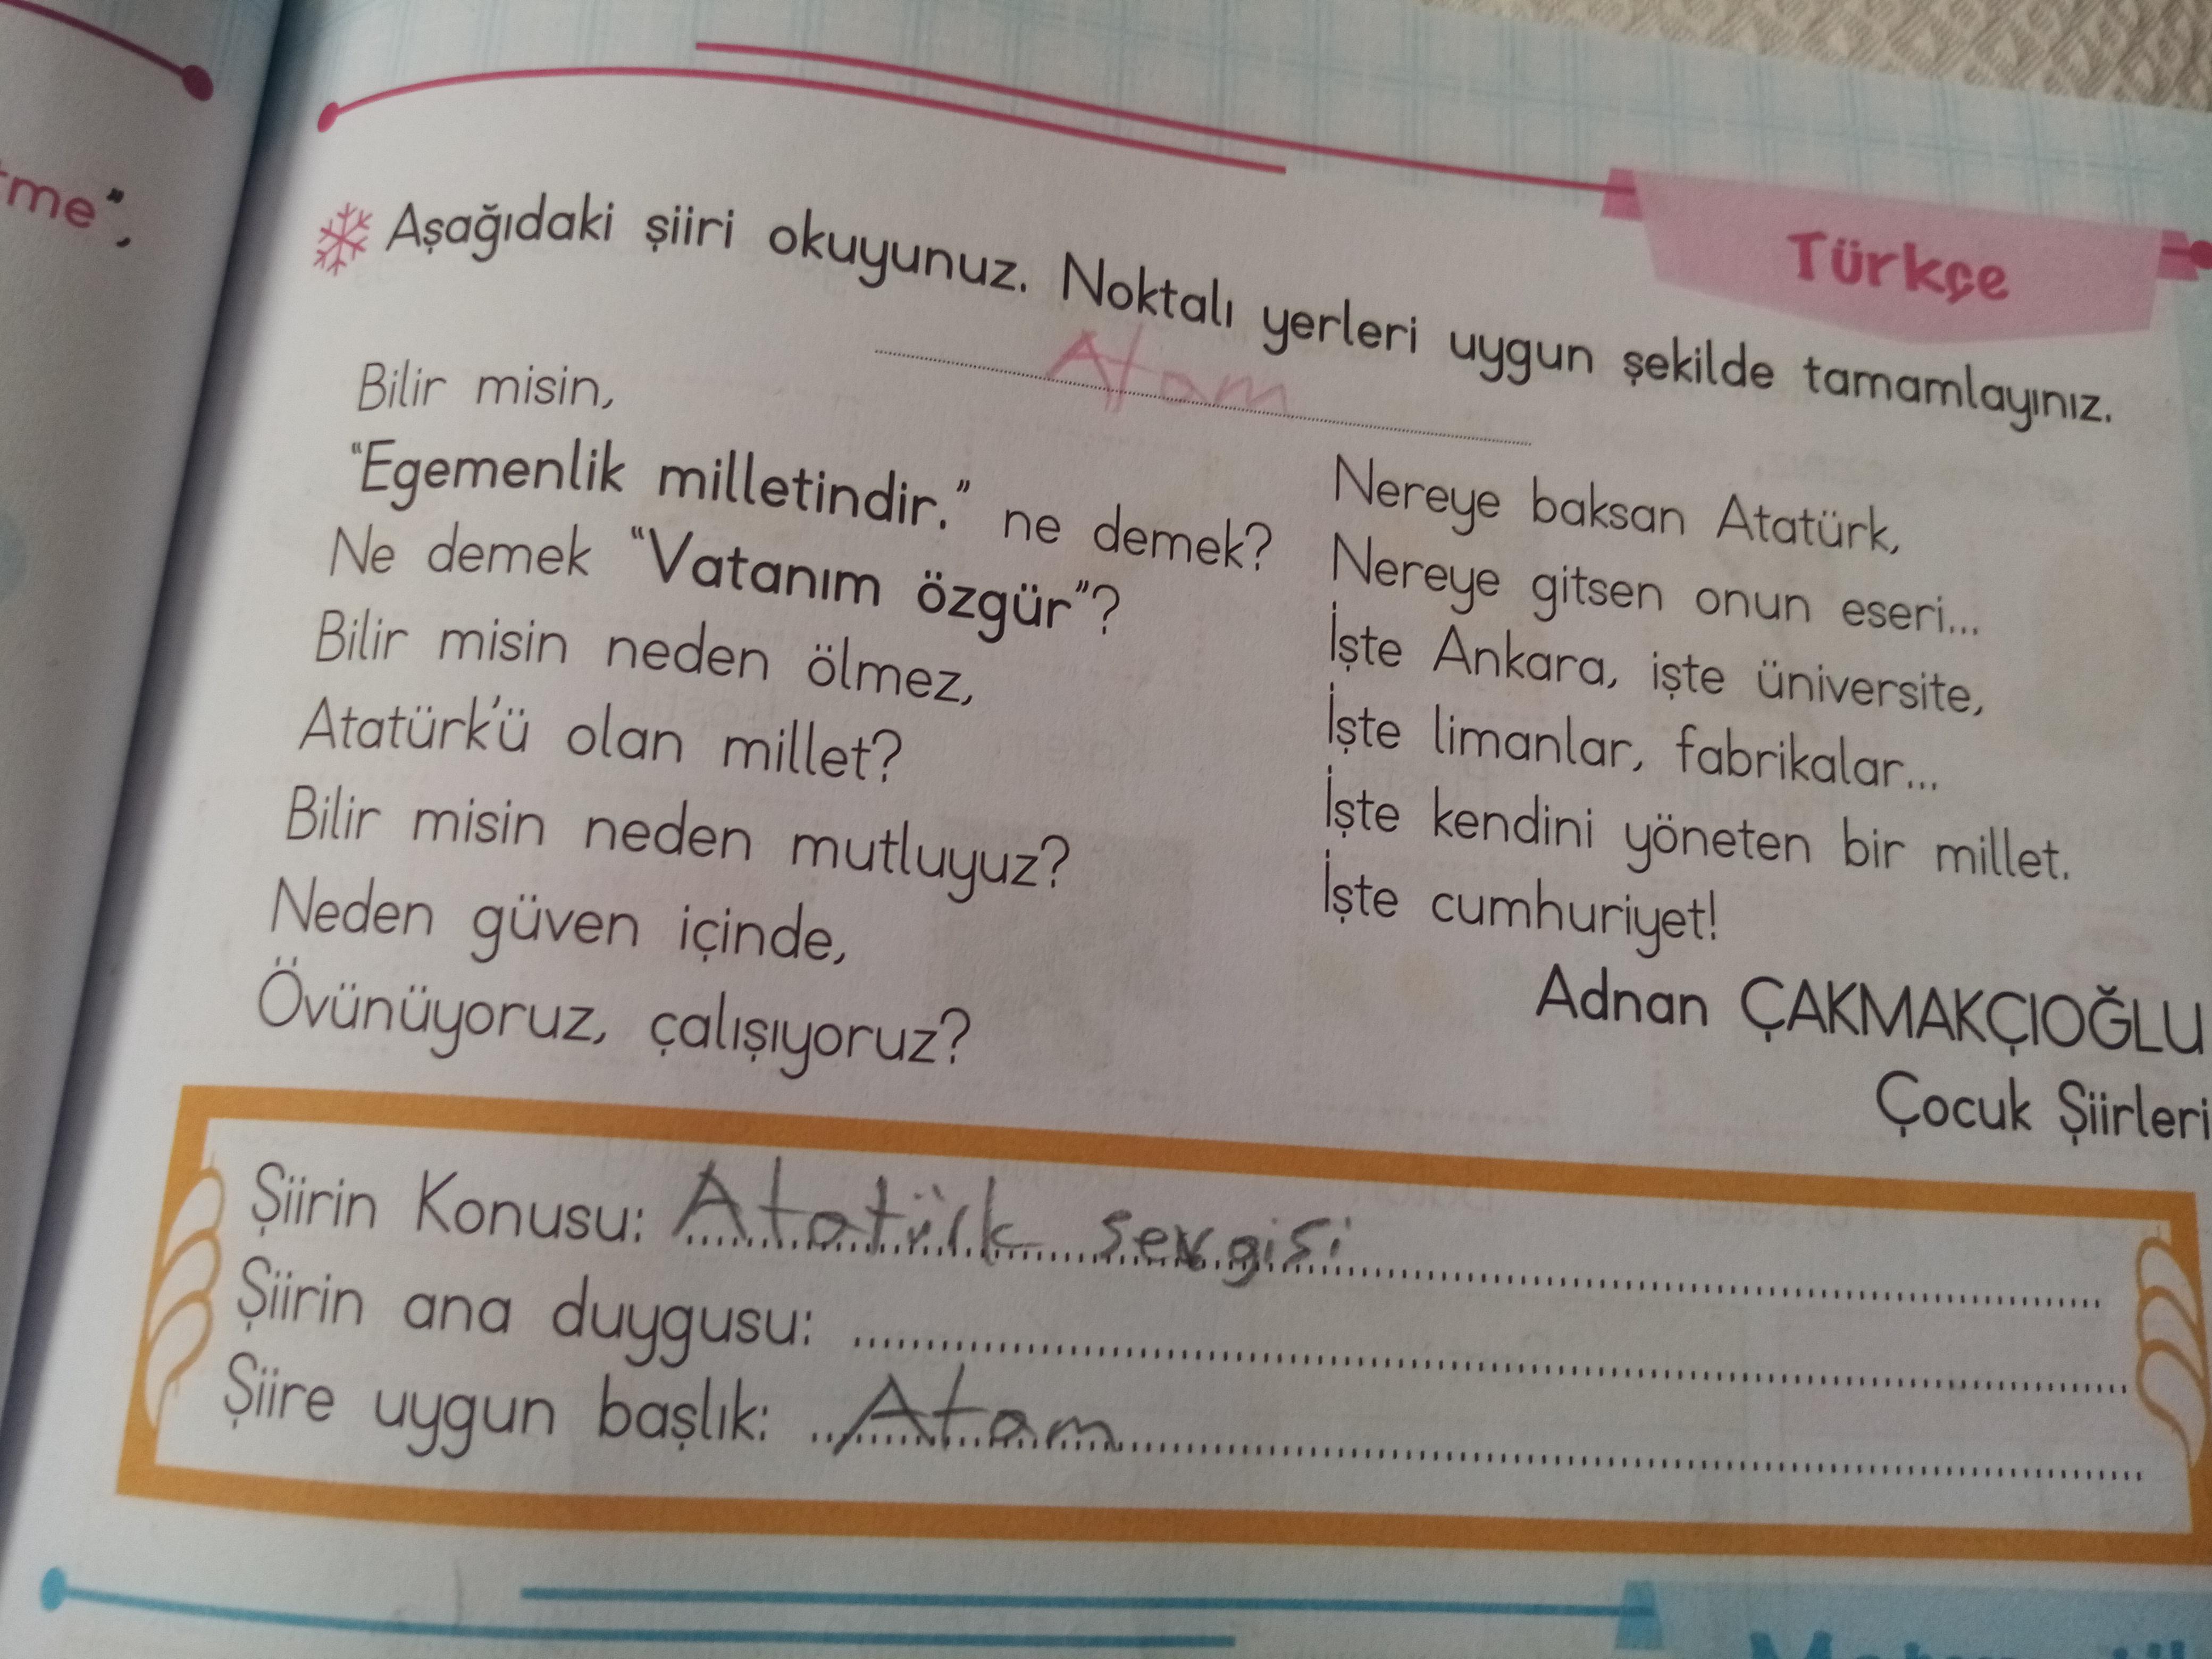 tme”,
Türkçe
Aşağıdaki şiiri okuyunuz. Noktalı yerleri uygun şekilde tamamlayınız.
Atam
Bilir misin,
“Egemenlik milletindir.” ne demek?
Ne demek “Vatanım özgür”?
Bilir misin neden ölmez,
Atatürk'ü olan millet?
Bilir misin neden mutluyuz?
Neden güven içinde,
Övünüyoruz, çalışıyoruz?
Nereye baksan Atatürk,
Nereye gitsen onun eseri...
İşte Ankara, işte üniversite,
İşte limanlar, fabrikalar...
İşte kendini yöneten bir millet.
İşte cumhuriyet!
Adnan ÇAKMAKÇIOĞLU
Çocuk Şiirleri
Şiirin Konusu: Atatürk sevgisi
Şiirin ana duygusu:
Şiire uygun başlık: Atam